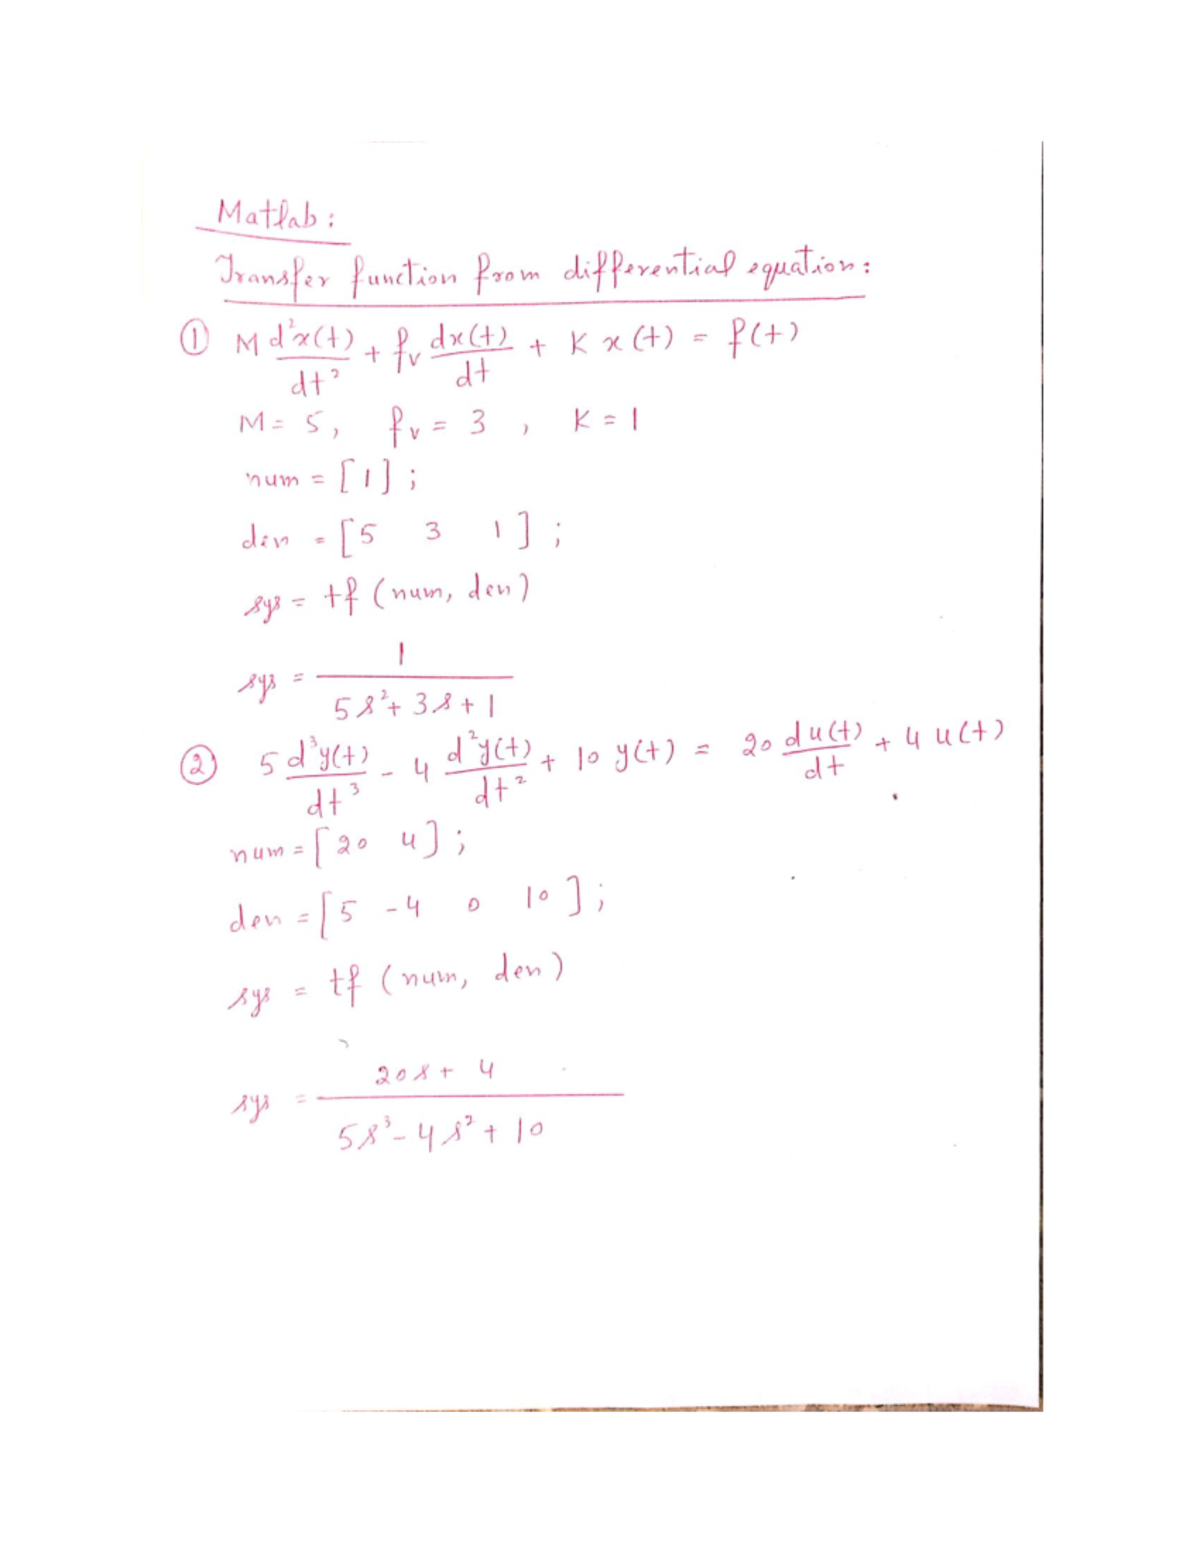 Matlab:
Transfer function from differential equation:
① M d²x(t)/dt² + fᵥ dx(t)/dt + K x(t) = f(t)
M = 5, fᵥ = 3, K = 1
num = [1];
den = [5 3 1];
sys = tf (num, den)
sys = 1/(5s² + 3s + 1)
② 5 d³y(t)/dt³ - 4 d²y(t)/dt² + 10 y(t) = 20 du(t)/dt + 4 u(t)
num = [20 4];
den = [5 -4 0 10];
sys = tf (num, den)
sys = (20s + 4)/(5s³ - 4s² + 10)